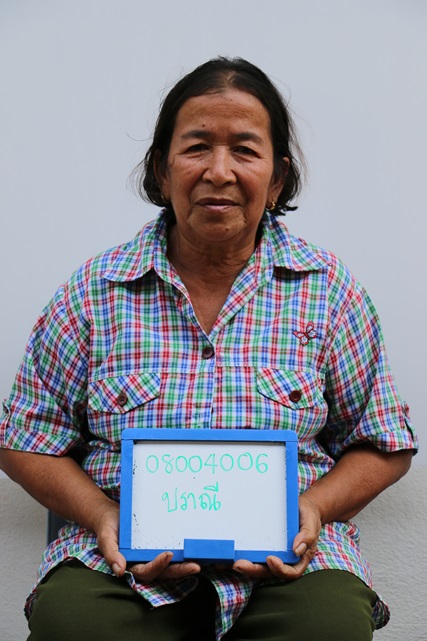 08004006
ปราณี